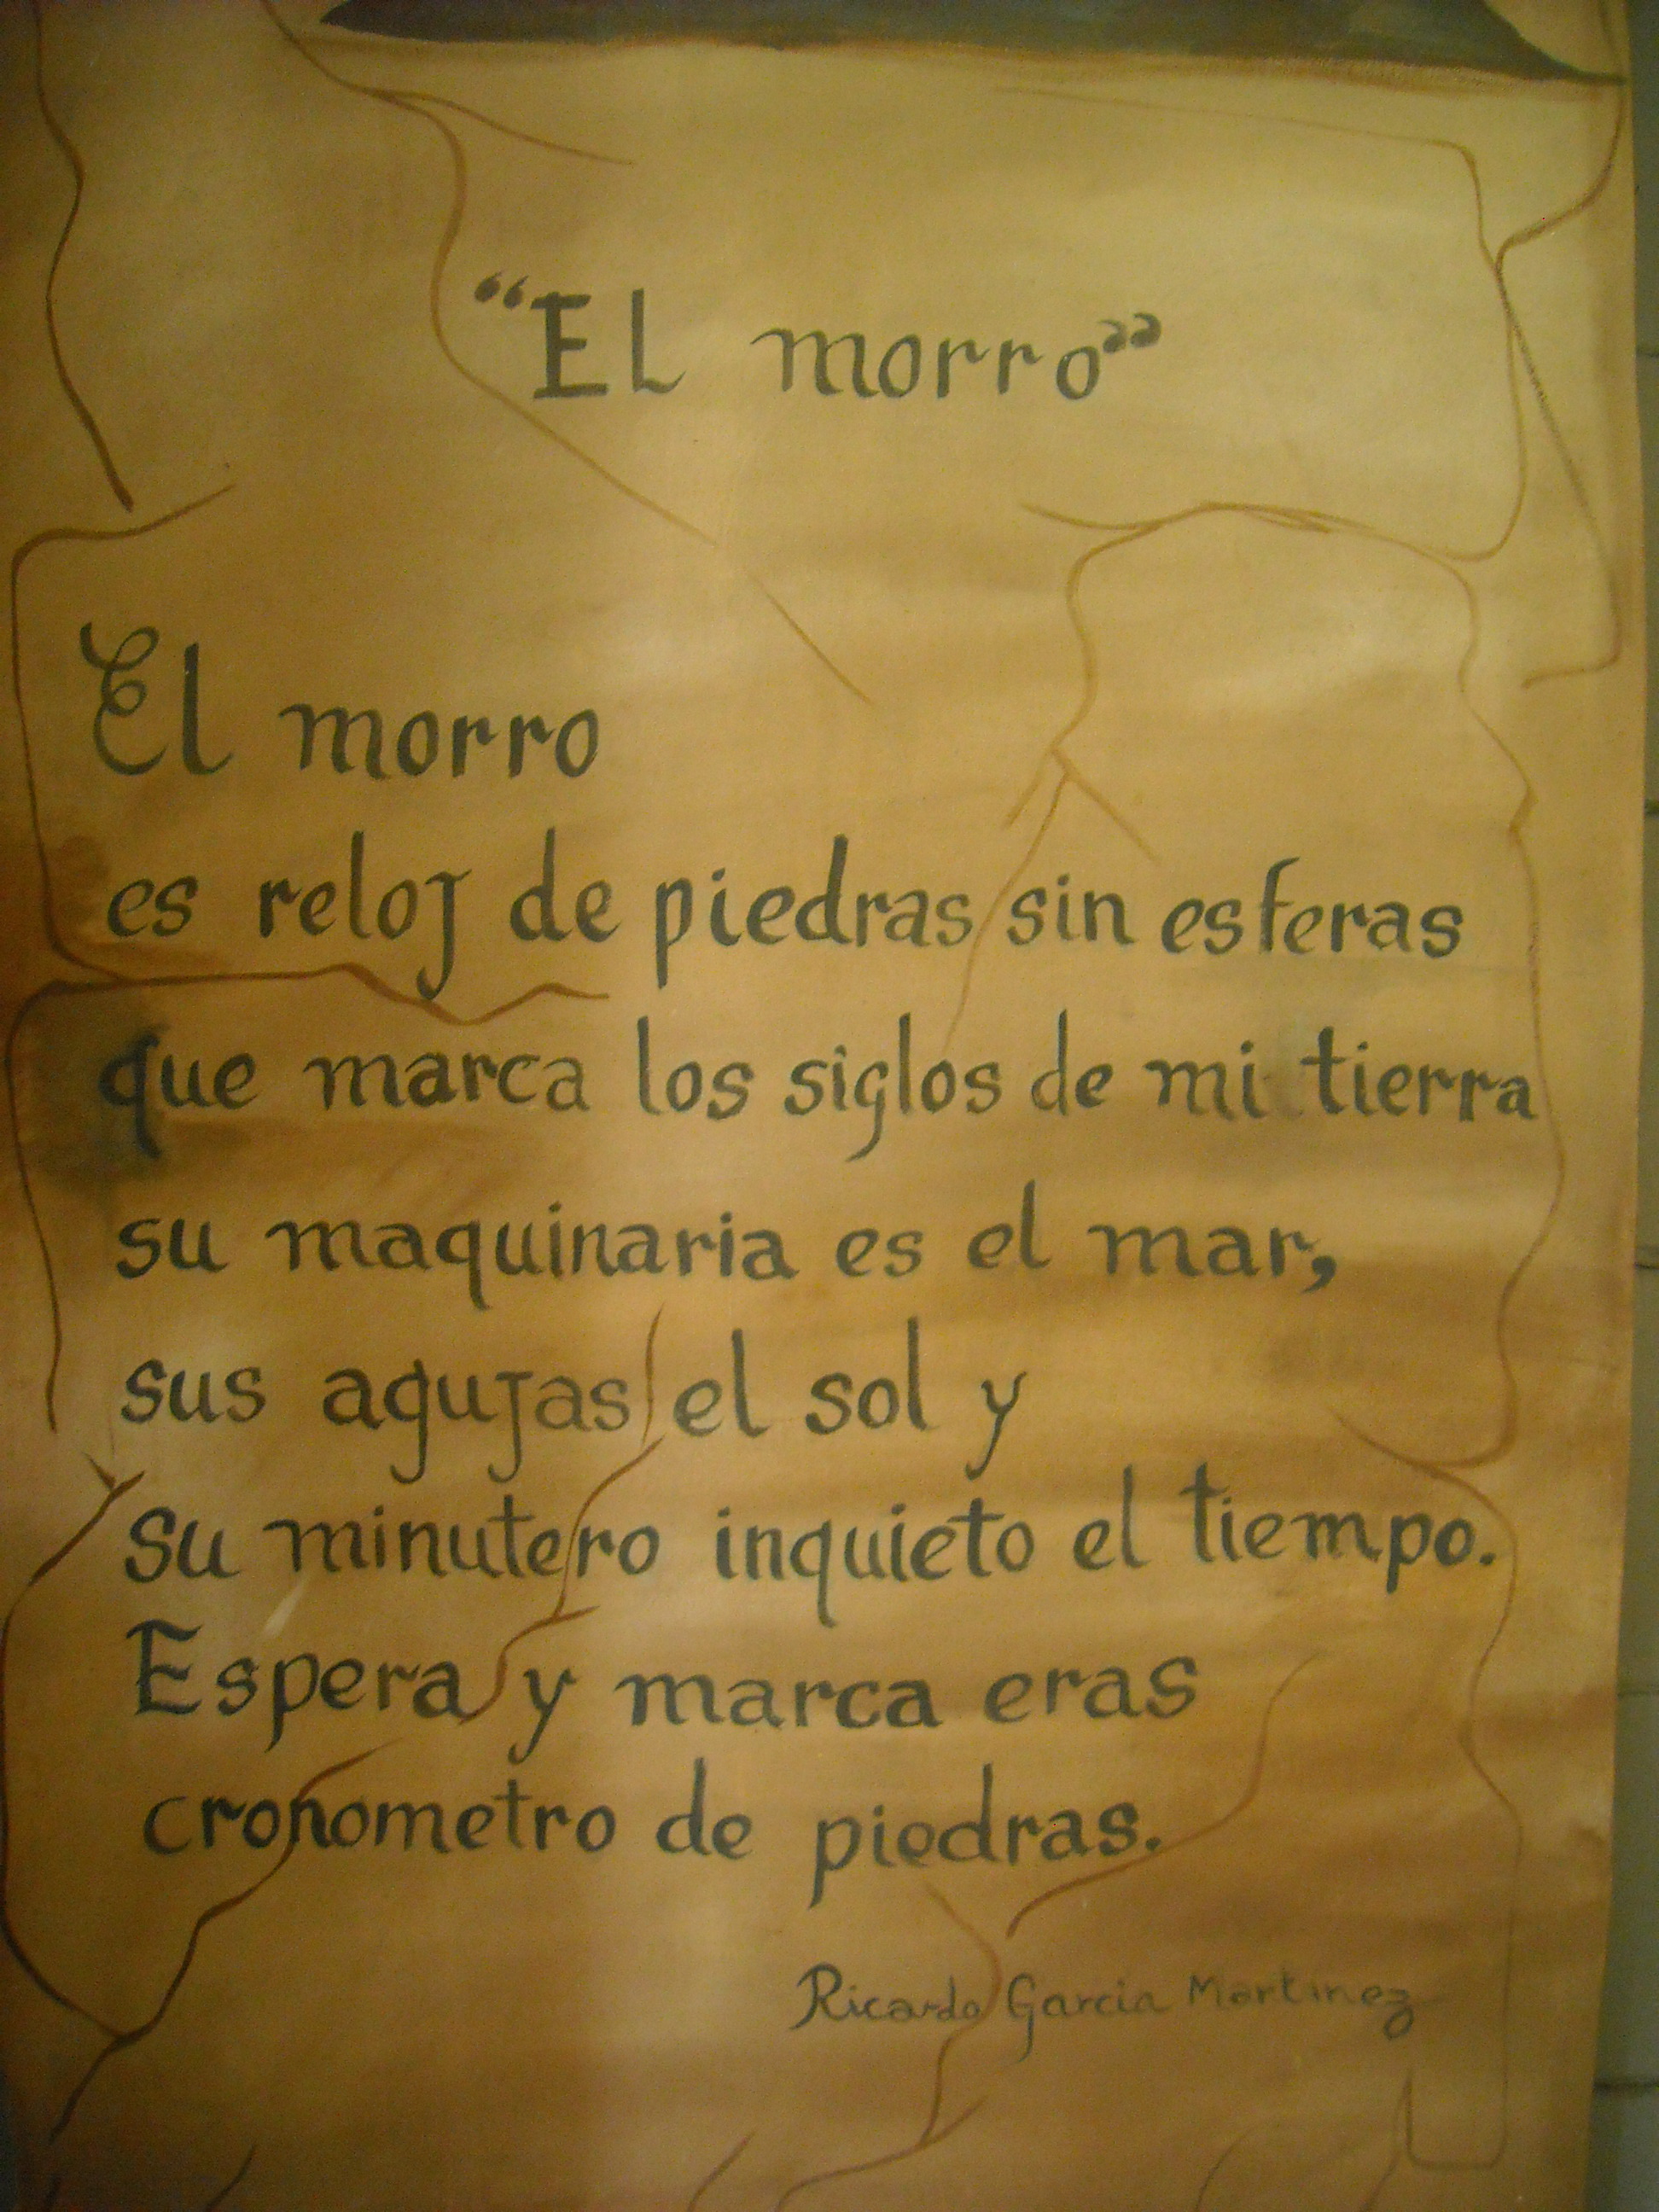 “El morro”
El morro
es reloj de piedras sin esferas
que marca los siglos de mi tierra
su maquinaria es el mar,
sus agujas el sol y
su minutero inquieto el tiempo.
Espera y marca eras
cronometro de piedras.
Ricardo Garcia Martinez